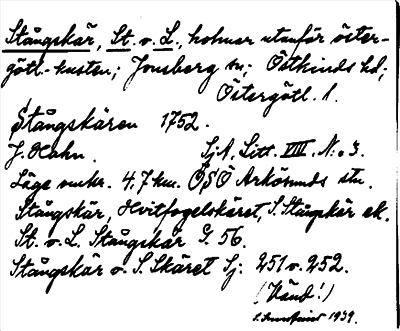 Stångskär, St. o. L., holmar utanför öster-
götl.-kusten; Jonsberg sn; Östkinds hd;
Östergötl. l.
Stångskären 1752.
J. Hahn. SjA, Litt. VIII, N:o 3.
Läge omkr. 4,7 km. OSO Arkösunds stn.
Stångskär, Hvitfogelskäret, S. Stångskär ek.
St. o. L. Stångskär G. 56.
Stångskär o. S. Skäret Sj. 251 o. 252.
(Vänd!)
1939.